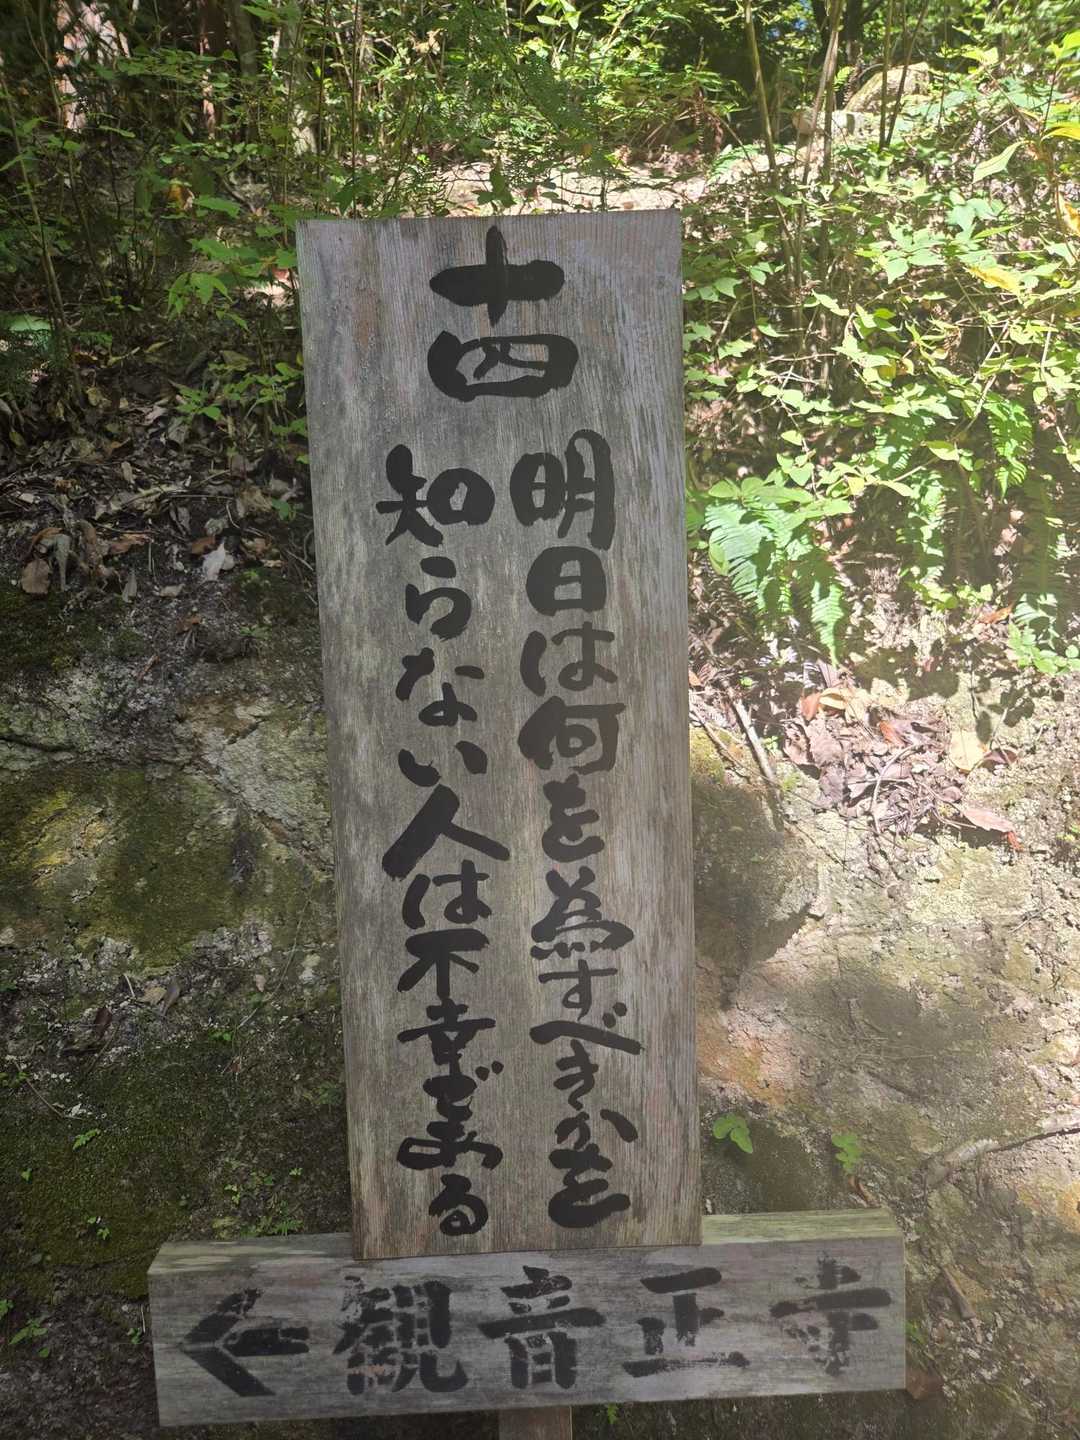 十四
明日は何を為すべきかを
知らない人は不幸である
←観音正寺